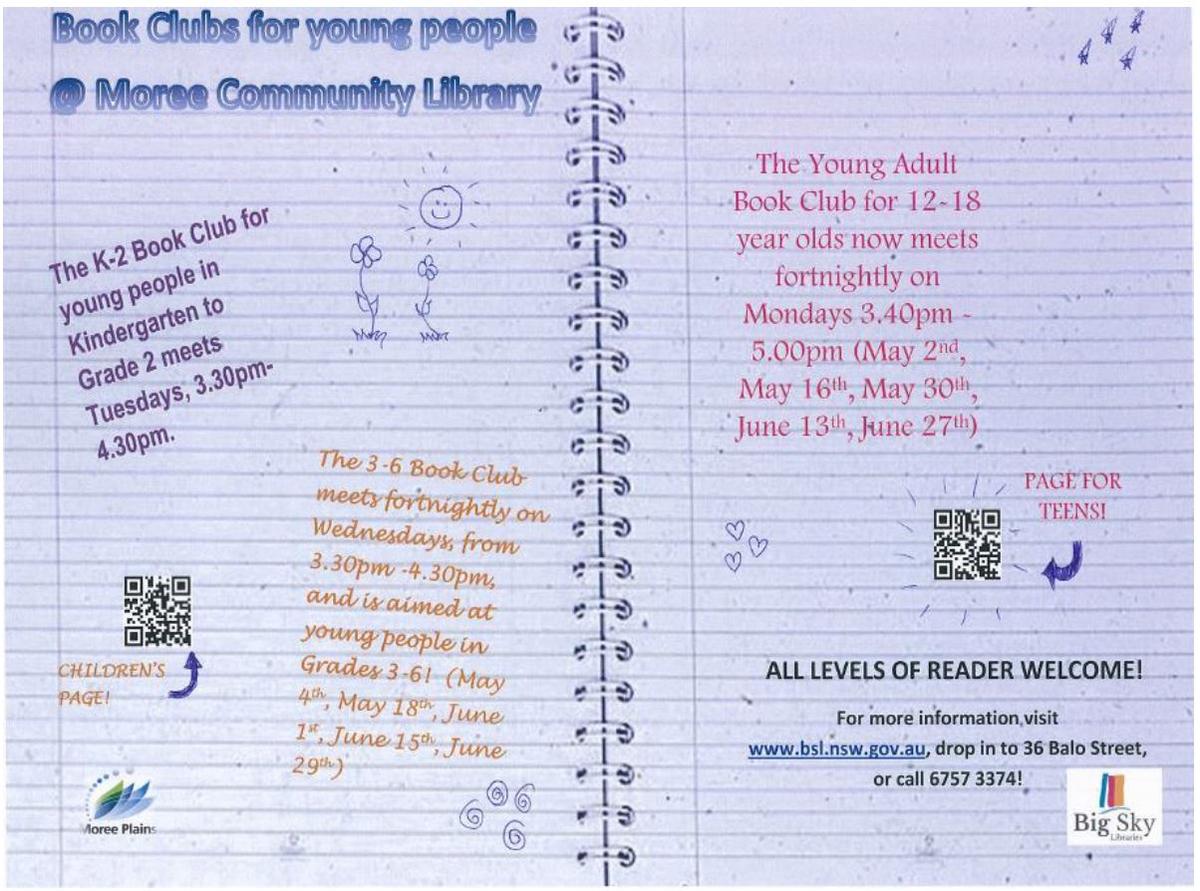 Book Clubs for young people
@ Moree Community Library
The K-2 Book Club for
young people in
Kindergarten to
Grade 2 meets
Tuesdays, 3.30pm-
4.30pm.
The 3-6 Book Club
meets fortnightly on
Wednesdays, from
3.30pm -4.30pm,
and is aimed at
young people in
Grades 3-6! (May
4th, May 18th, June
1st, June 15th, June
29th)
CHILDREN'S
PAGE!
Moree Plains
The Young Adult
Book Club for 12-18
year olds now meets
fortnightly on
Mondays 3.40pm -
5.00pm (May 2nd,
May 16th, May 30th,
June 13th, June 27th)
PAGE FOR
TEENS!
ALL LEVELS OF READER WELCOME!
For more information visit
www.bsl.nsw.gov.au, drop in to 36 Balo Street,
or call 6757 3374!
Big Sky
Libraries